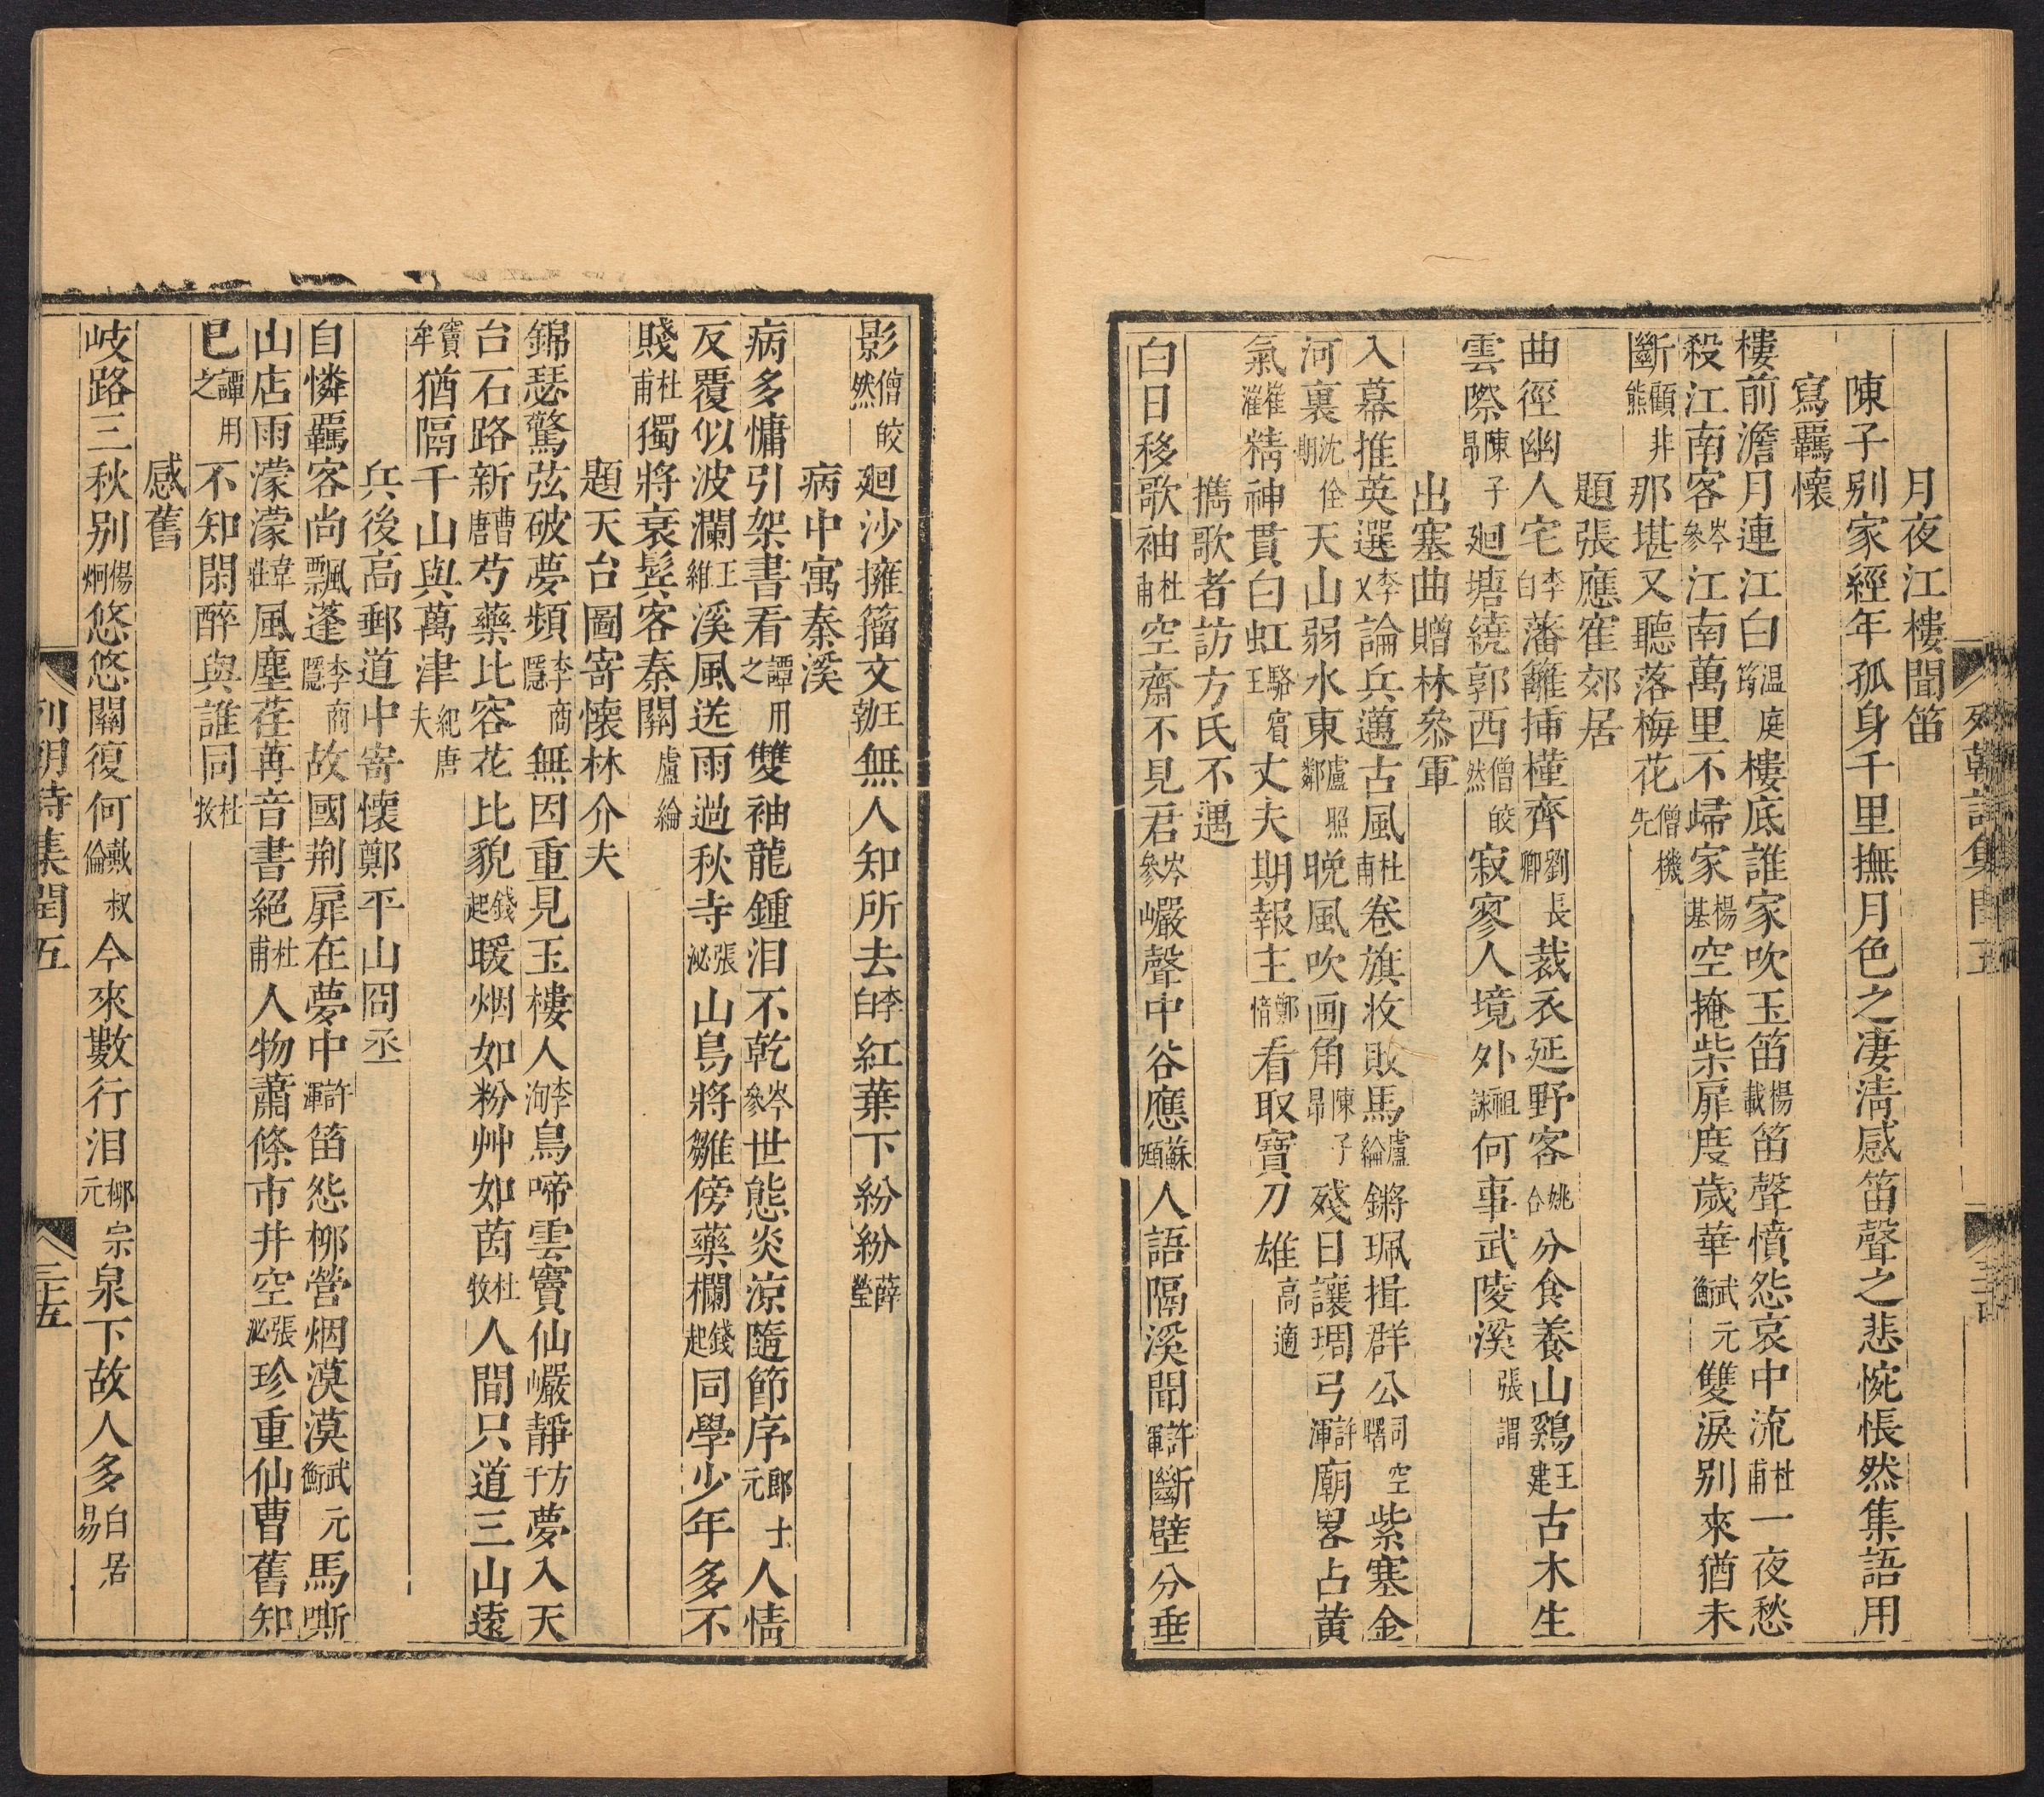 月夜江樓聞笛
陳子別家經年孤身千里撫月色之凄淸感笛聲之悲惋悵然集語用
寫羈懷
樓前澹月連江白温庭筠樓底誰家吹玉笛楊載笛聲憤怨哀中流杜甫一夜愁
殺江南客岑參江南萬里不歸家楊基空掩柴扉度歲華武元衡雙淚别來猶未
斷顧非熊那堪又聽落梅花僧機先
題張應寉郊居
曲徑幽人宅李白藩籬插槿齊劉長卿裁衣延野客姚合分食養山鷄王建古木生
雲際陳子昂廻塘繞郭西僧皎然寂寥人境外祖詠何事武陵溪張謂
出塞曲贈林叅軍
入幕推英選李乂論兵邁古風杜甫卷旗收敗馬盧綸鏘珮揖群公司空曙紫塞金
河裏沈佺期天山弱水東盧照鄰晩風吹画角陳子昂殘日讓琱弓許渾廟畧占黄
氣崔漼精神貫白虹駱賓王丈夫期報主鄭愔看取寶刀雄高適
攜歌者訪方氏不遇
白日移歌袖杜甫空齋不見君岑參巖聲中谷應蘇頲人語隔溪聞許渾斷壁分垂
影僧皎然廻沙擁籀文王勃無人知所去李白紅葉下紛紛薛瑩
病中寓秦溪
病多慵引架書看譚用之雙袖龍鍾泪不乾岑參世態炎凉隨節序郎士元人情
反覆似波瀾王維溪風送雨過秋寺張泌山鳥將雛傍藥欄錢起同學少年多不
賤杜甫獨將衰鬂客秦關盧綸
題天台圖寄懷林介夫
錦瑟驚弦破夢頻李商隱無因重見玉樓人李洵鳥啼雲竇仙巖靜方干夢入天
台石路新曹唐芍藥比容花比貌錢起暖烟如粉艸如茵杜牧人間只道三山遠
竇牟猶隔千山與萬津紀唐夫
兵後高郵道中寄懷鄭平山冏丞
自憐羈客尚飄蓬李商隱故國荆扉在夢中許渾笛怨柳營烟漠漠武元衡馬嘶
山店雨濛濛韋莊風塵荏苒音書絕杜甫人物蕭條市井空張泌珍重仙曹舊知
已譚用之不知閑醉與誰同杜牧
感舊
岐路三秋别楊炯悠悠關復何戴叔倫今來數行泪柳宗元泉下故人多白居易
列朝詩集閏五
三五